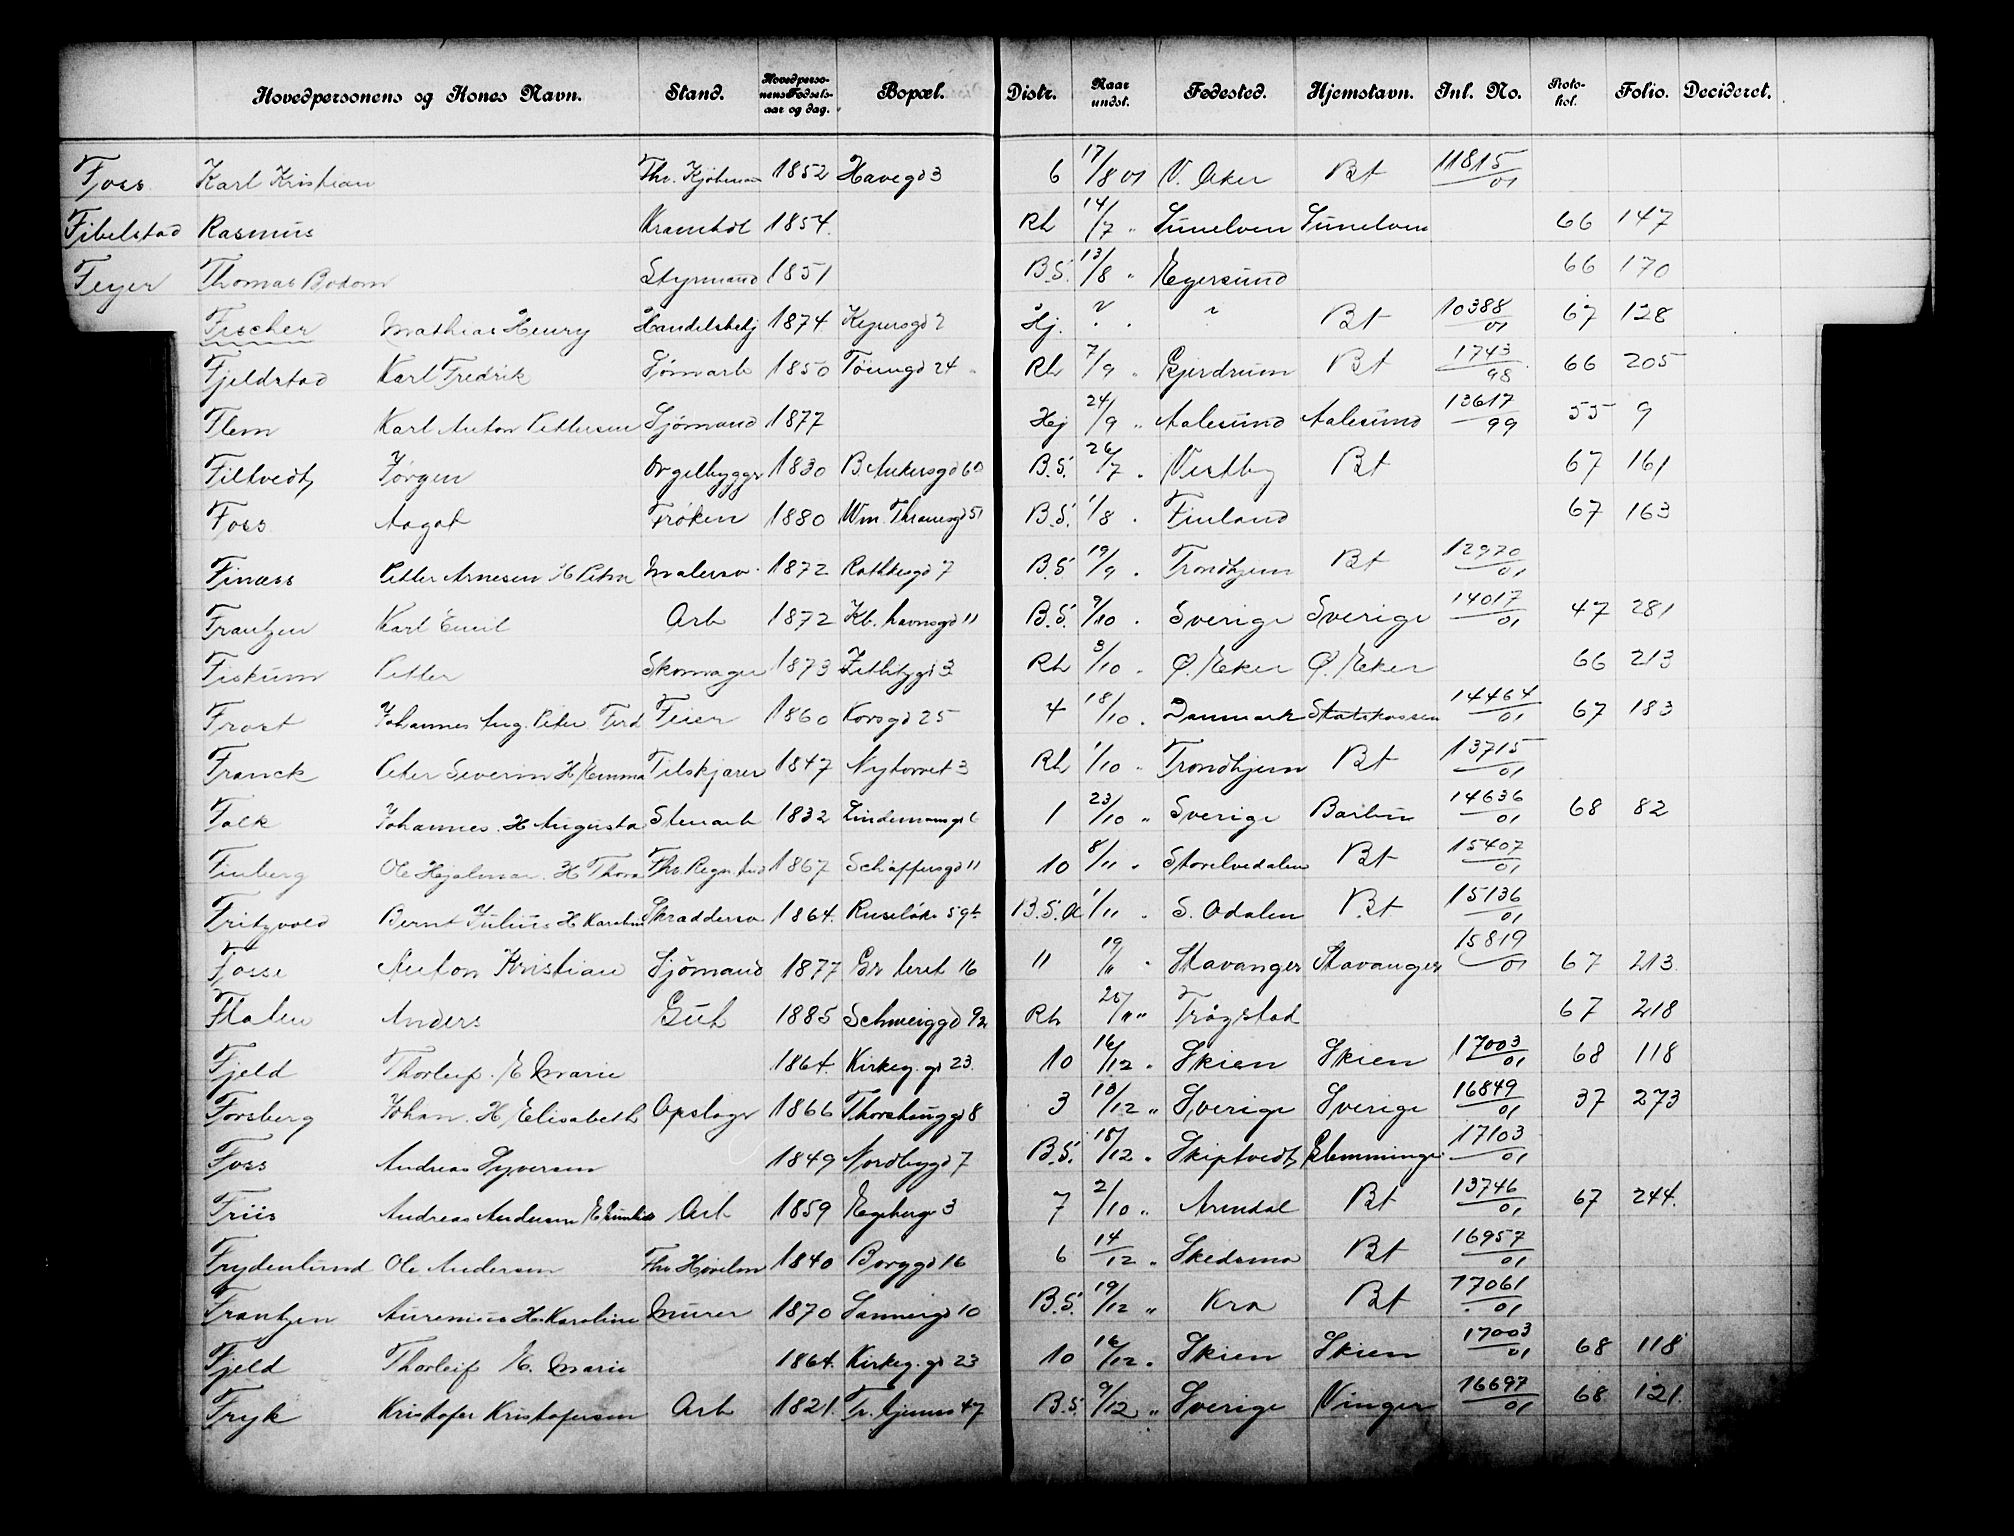 Hovedpersonens og Kones Navn. Stand. Hovedpersonens Fødselsaar og dag. Bopæl. Distr. Naar undst. Fødested. Hjemstavn. Inl. No. Protokol. Folio. Decideret.
Foss Karl Kristian Fhv. 1852 Havegd 3 6 17/8 01 V. Aker Bt 11815/01
Fibelstad Rasmus 1854. Rh 14/7 " Sunelven Sunelven 66 147
Feyer Thomas Bodom Styrmand 1851 B.S. 13/8 " Egersund 66 170
Fischer Mathias Henry Handelsbetj 1874 Keysersgd 2 Hj. ? " ? Bt 10388/01 67 128
Fjeldstad Karl Fredrik Tømarb 1850 Tøiengd 24 Rh 7/9 " Gjerdrum Bt 1743/98 66 205
Flem Karl Anton Pettersen Sjømand 1877 Hj 24/9 " Aalesund Aalesund 13617/99 55 9
Filtvedt Jørgen Orgelbygger 1830 B Ankersgd 60 B.S. 26/7 " Vestby Bt 67 161
Foss Aagot Frøken 1880 Wm. Thranesgd 51 B.S. 1/8 " Finland 67 163
Finæss Petter Arnesen H Petra Malersv. 1872 Rathkesgd 7 B.S 19/9 " Trondhjem Bt 12970/01
Frantzen Karl Emil Arb 1872 Kb.havnsgd 11 B.S. 9/10 " Sverige Sverige 14017/01 47 281
Fiskum Petter Skomager 1873 Zetlitzgd 3 Rh 3/10 " Ø. Eker Ø. Eker 66 213
Frost Johannes Aug. Peter Ferd Feier 1860 Korsgd 25 4 18/10 " Danmark Statskassen 14464/01 67 183
Franck Peter Severin H Emma Tilskjærer 1847 Nytorvet 3 Rh 1/10 " Trondhjem Bt 13715/01
Falk Johannes. H Augusta Stenarb 1832 Lindemansgd 6 1 23/10 " Sverige Barbu 14636/01 68 82
Finberg Ole Hjalmar. H Thora Fhv. 1867 Schäffersgd 11 10 8/11 " Storelvedalen Bt 15407/01
Fritzvold Bernt Julius H Karoline Skræddersv 1864. Ruseløkv 59b B.S.A 1/11 " S. Odalen Bt 15136/01
Fosse Anton Kristian Sjømand 1877 Gr leret 16 11 19/11 " Stavanger Stavanger 15819/01 67 213.
Flaten Anders Gut 1885 Schweiggd 92 Rh 25/11 " Trøgstad 67 218
Fjeld Thorleif. E Marie 1864. Kirkeg. gd 23. 10 16/12 " Skien Skien 17003/01 68 118
Forsberg Johan. H Elisabeth Opslager 1866 Thorshauggd 8 3 13/12 " Sverige Sverige 16849/01 37 273
Foss Andreas Syversen 1849 Nordbygd 7 B.S. 15/12 " Skiptvedt Glemminge 17103/01
Friis Andreas Andersen Arb 1859 Egebergv 3 7 2/10 " Arendal Bt 13746/01 67 244.
Frydenlund Ole Andersen Fhv Høvelm 1840 Borggd 16 6 14/12 " Skedsmo Bt 16957/01
Frantzen Aurenius H. Karoline Murer 1870 Sannergd 10 B.S. 19/12 " Kra Bt 17061/01
Fjeld Thorleif E. Marie 1864. Kirkeg. gd 23 10 16/12 " Skien Skien 17003/01 68 118
Fryk Kristofer Kristofersen Arb 1821. Tr.hjemsv 47 B.S. 9/12 " Sverige Vinger 16697/01 68 121.